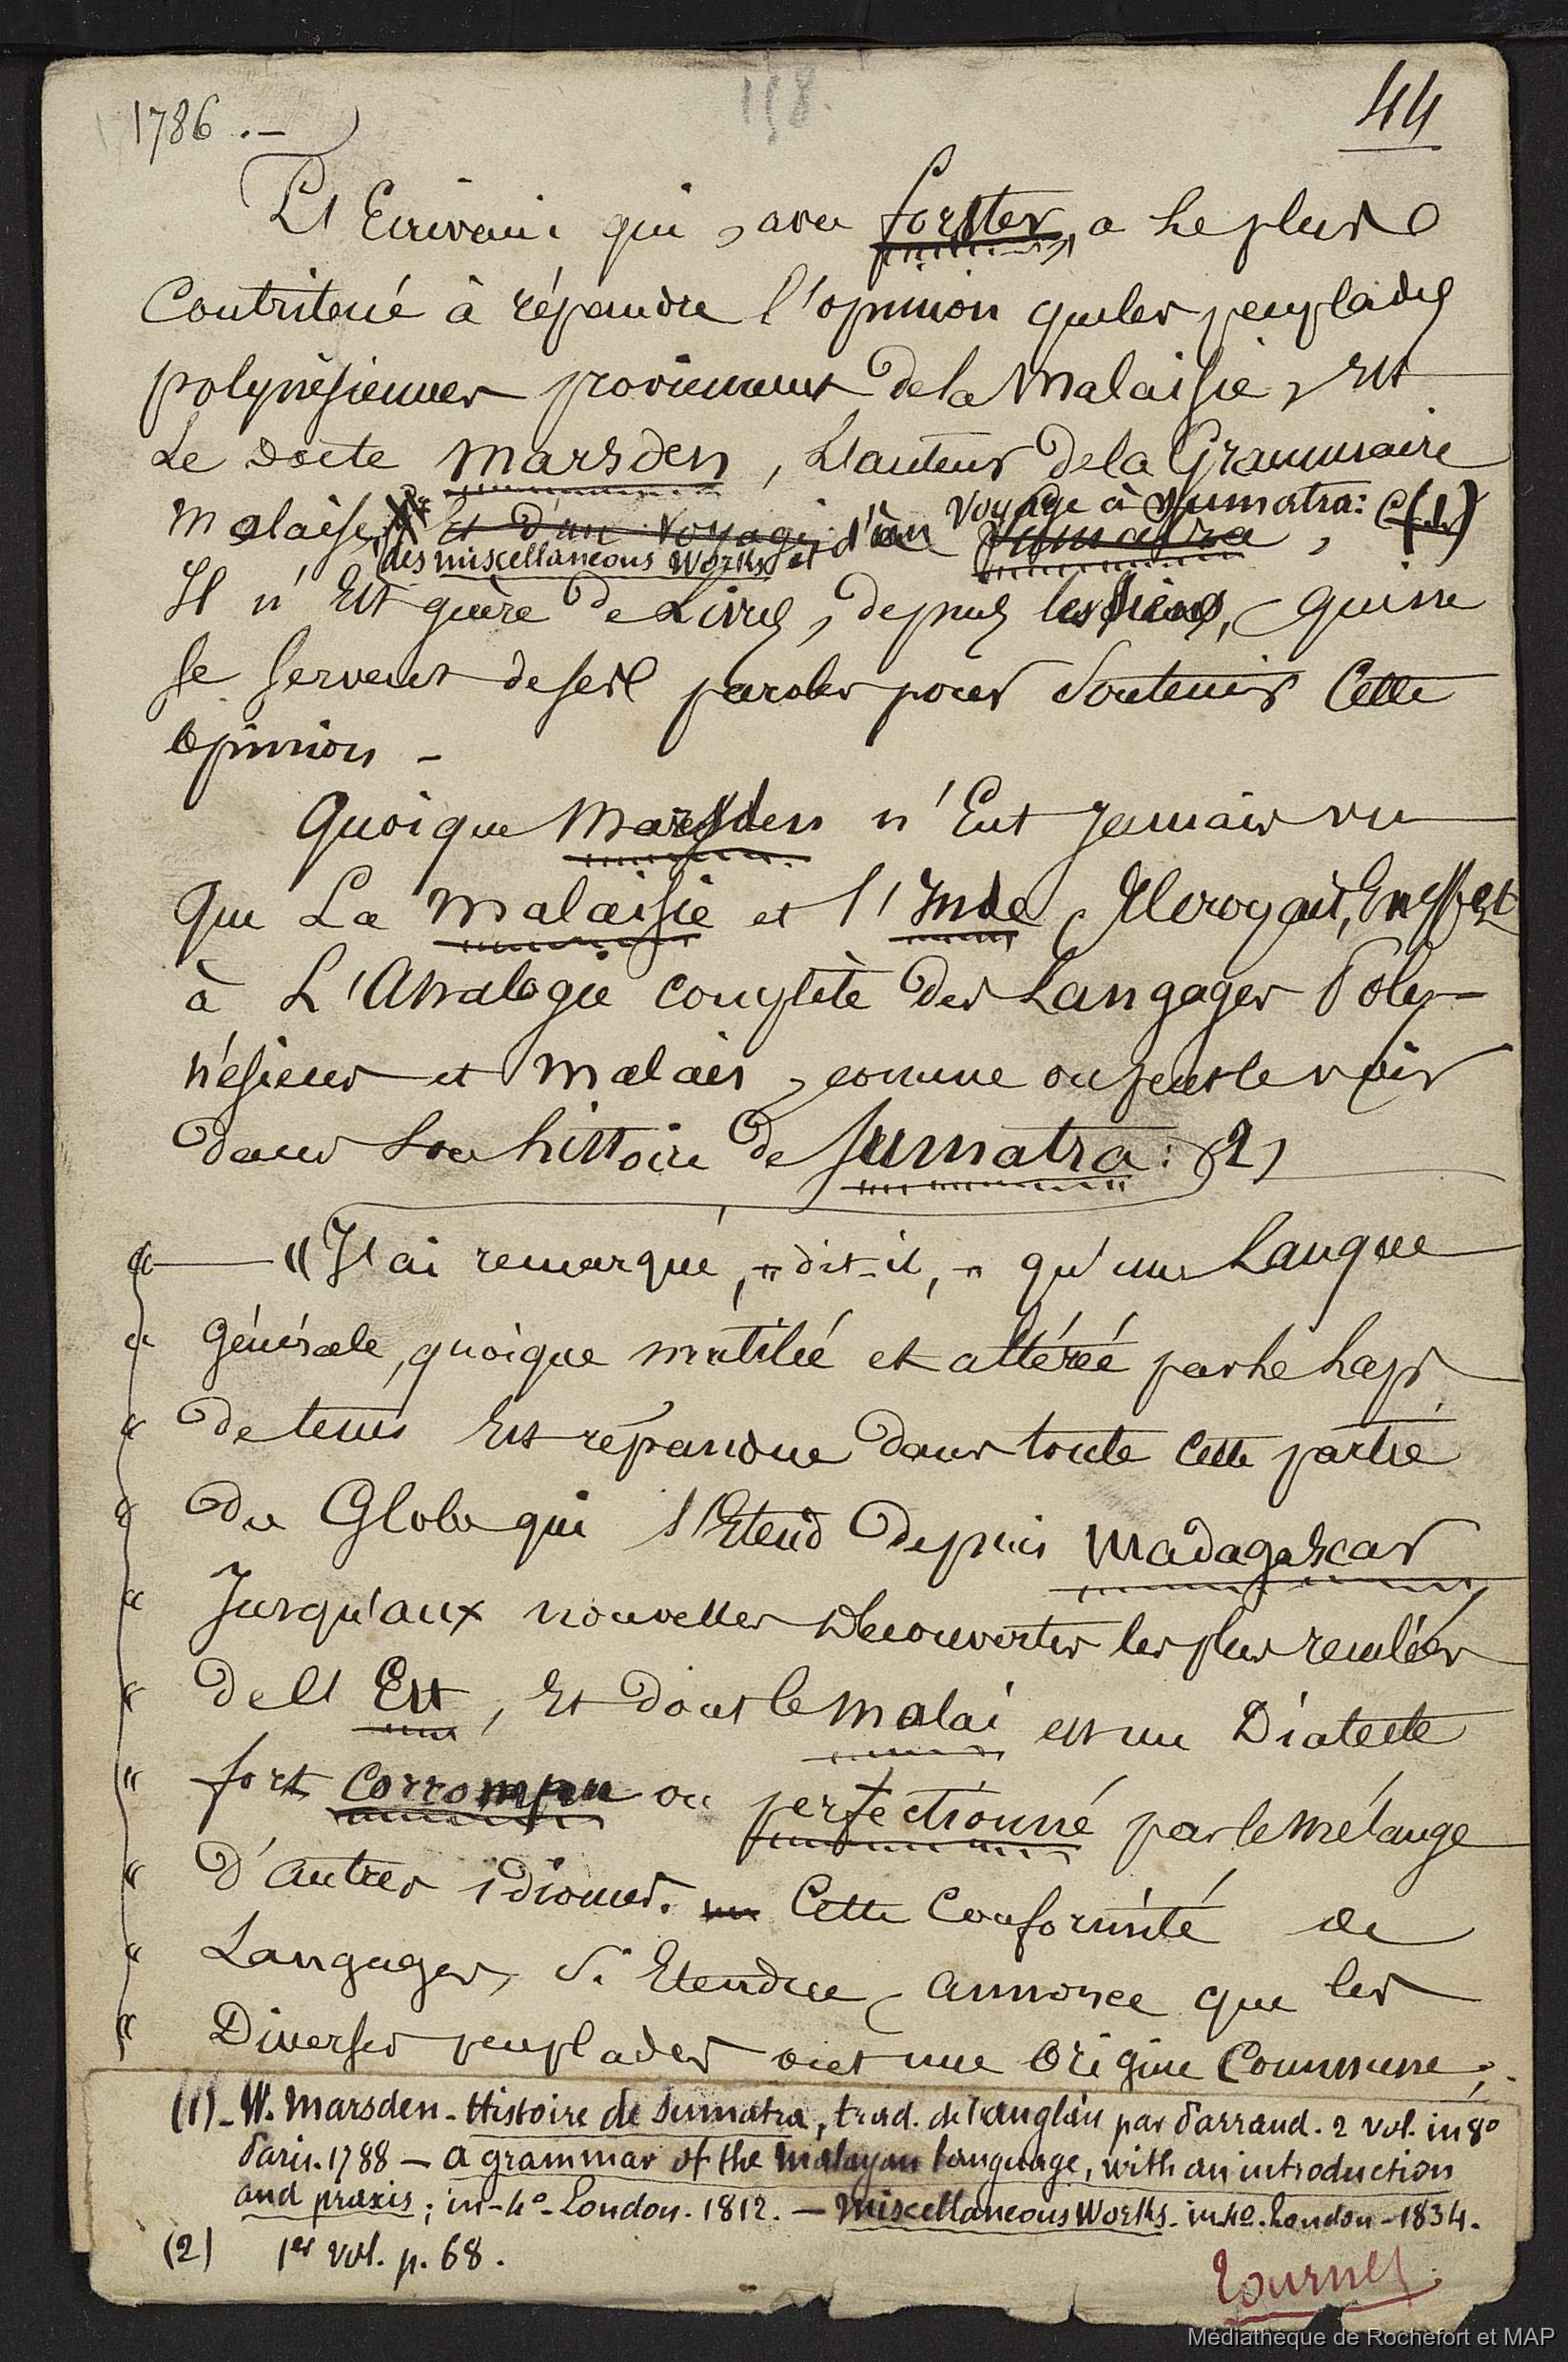 1786 . —
158.
44
L'Ecrivain qui, avec forster, a le plus
Contribué à répandre l'opinion que les peuplades
polynésiennes proviennent de la Malaisie, est
Le docte Marsden, L'auteur de la Grammaire
Malaise, et d'un voyage d'un voyage à Sumatra: Sumatra, (1)
des miscellaneous Works et
Il n'est guère de Livres, depuis les siens, qui ne
se servent de ses paroles pour soutenir Cette
opinion -
Quoique Marsden n'Eut jamais vu
que La Malaisie et l'Inde, Il croyait, En effet
à L'Analogie complète des Langages Poly-
nésiens et Malais, comme on peut le voir
dans son histoire de Sumatra: (2)
« — "J'ai remarqué, - dit-il, - qu'une Langue
« Générale, quoique mutilée et altérée par le laps
« de tems Est répandue dans toute cette partie
« du Globe qui s'Etend depuis Madagascar
« Jusqu'aux nouvelles Découvertes les plus reculées
« de l'Est, Et dont le Malai est un Dialecte
« fort corrompu ou perfectionné par le mélange
« D'autres idiomes. Cette Conformité de
« Langages, si Etendue, annonce que les
« Diverses peuplades ont une Origine Commune;
(1) - W. Marsden - Histoire de Sumatra, trad. de l'anglais par Parraud. 2 vol. in 8º
Paris. 1788 — A grammar of the Malayan language, with an introduction
and praxis; in-4º - London. 1812. — Miscellaneous Works. in 4º. London - 1834.
(2) 1er vol. p. 68.
Tournez
Médiathèque de Rochefort et MAP